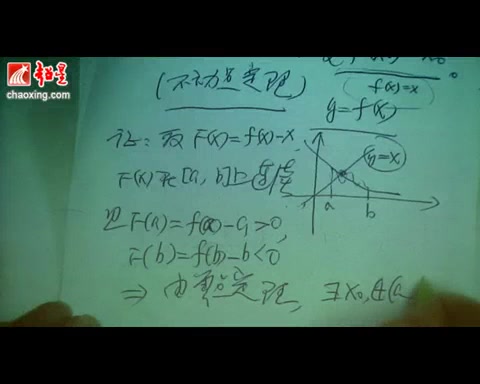 超星
chaoxing.com
x₀。
(不动点定理)
f(x)=x
y=f(x)
证:设 F(x)=f(x)-x
y=x
F(x)在[a,b]上连续
a
b
且F(a)=f(a)-a>0,
F(b)=f(b)-b<0
⇒ 由零点定理, ∃x₀,∈(a